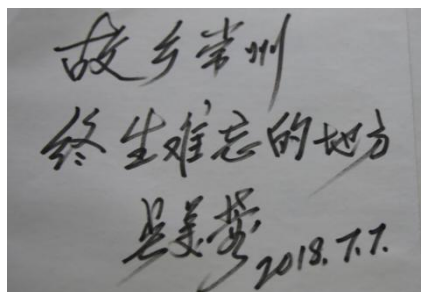 故乡常州
终生难忘的地方
吴美蓉 2018.7.7.